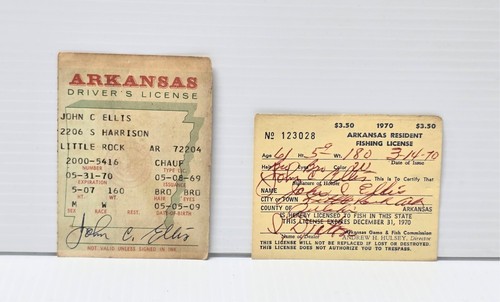 ARKANSAS
DRIVER'S LICENSE
JOHN C ELLIS
2206 S HARRISON
LITTLE ROCK AR 72204
2000-5416 CHAUF
05-31-70 05-08-69
EXPIRATION ISSUANCE
5-07 160 BRO BRO
M W 05-05-09
SEX RACE DATE-OF-BIRTH
John C. Ellis
NOT VALID UNLESS SIGNED IN INK
$3.50 1970 $3.50
No 123028 ARKANSAS RESIDENT
FISHING LICENSE
Age 61 Ht. 5 Wt. 180 3-14-70
Date of Issue
John Ellis This is to Certify That
Signature of Holder
NAME John Ellis
CITY or TOWN Little Rock Ark
COUNTY OF ARKANSAS
IS HEREBY LICENSED TO FISH IN THIS STATE
THIS LICENSE EXPIRES DECEMBER 31, 1970
Arkansas Game & Fish Commission
Name of Dealer ANDREW H. HULSEY, Director
THIS LICENSE WILL NOT BE REPLACED IF LOST OR DESTROYED.
THIS LICENSE DOES NOT AUTHORIZE YOU TO TRESPASS.